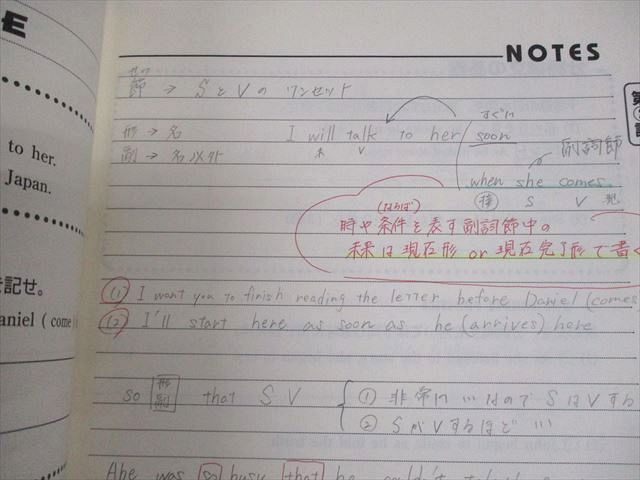 NOTES
to her.
Japan.
を記せ。
aniel ( come
せつ
節 → SとVのワンセット
形 → 名
副 → 名以外
I will talk to her / soon
すぐに
未 V
副詞節
when she comes.
接 S V 現
(ならば)
時や条件を表す副詞節中の
未来は現在形 or 現在完了形で書く
(1) I want you to finish reading the letter before Daniel (comes
(2) I'll start here as soon as he (arrives) here
so 形 副 that S V
① 非常に…なので SはVする
② SがVするほど…
Abe was so busy that he couldn't